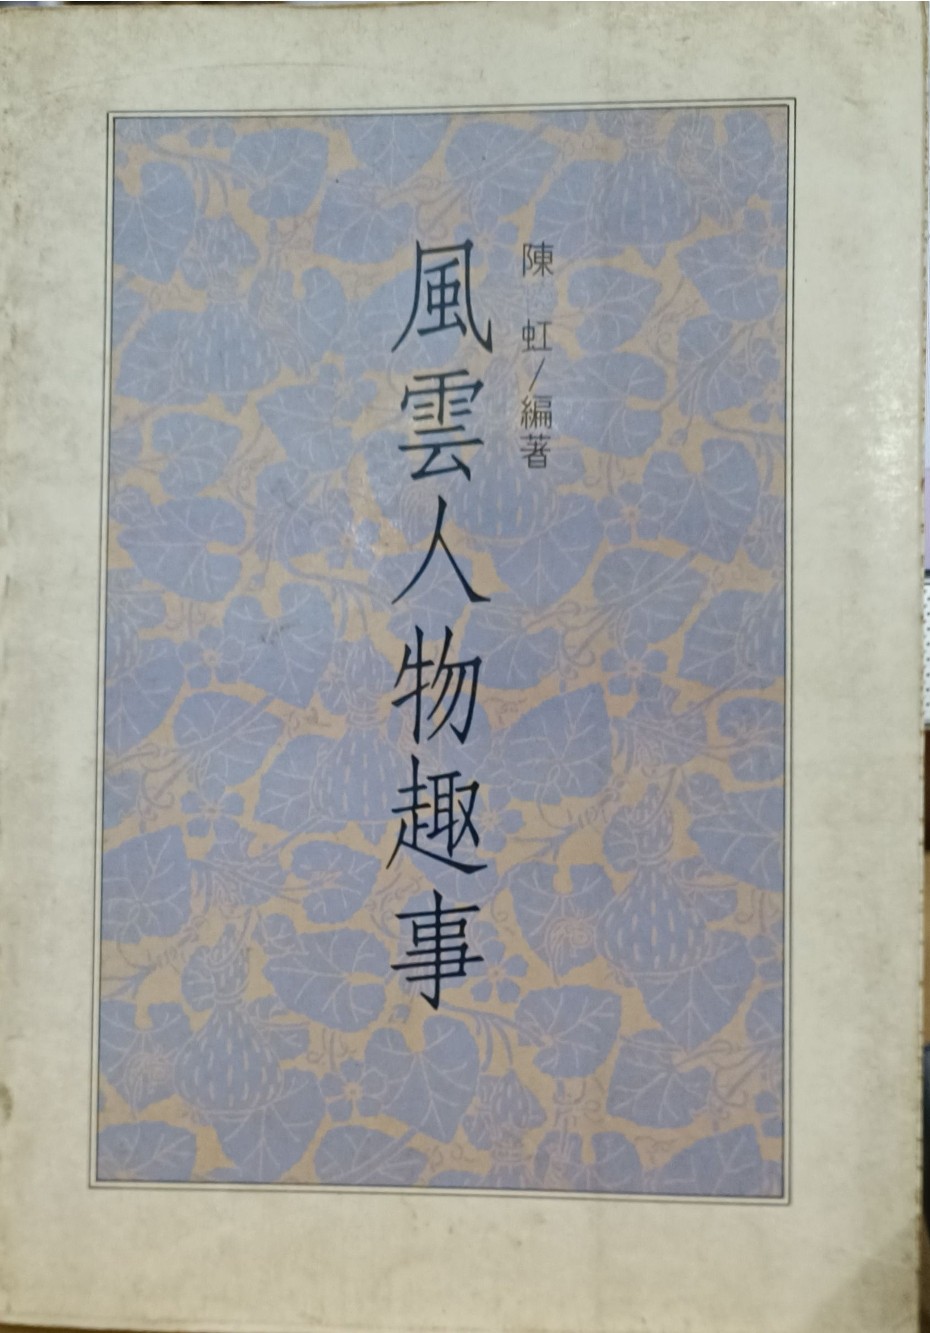 陳虹/編著
風雲人物趣事